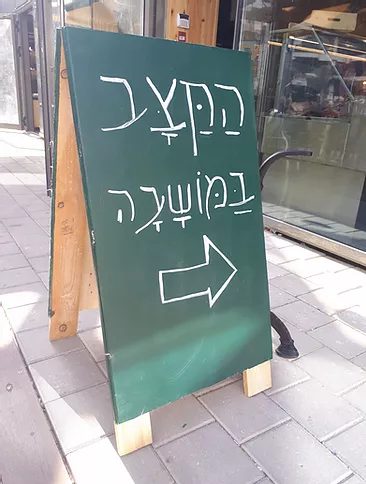 הַקַּצָּב
בַּמּוֹשָׁבָה